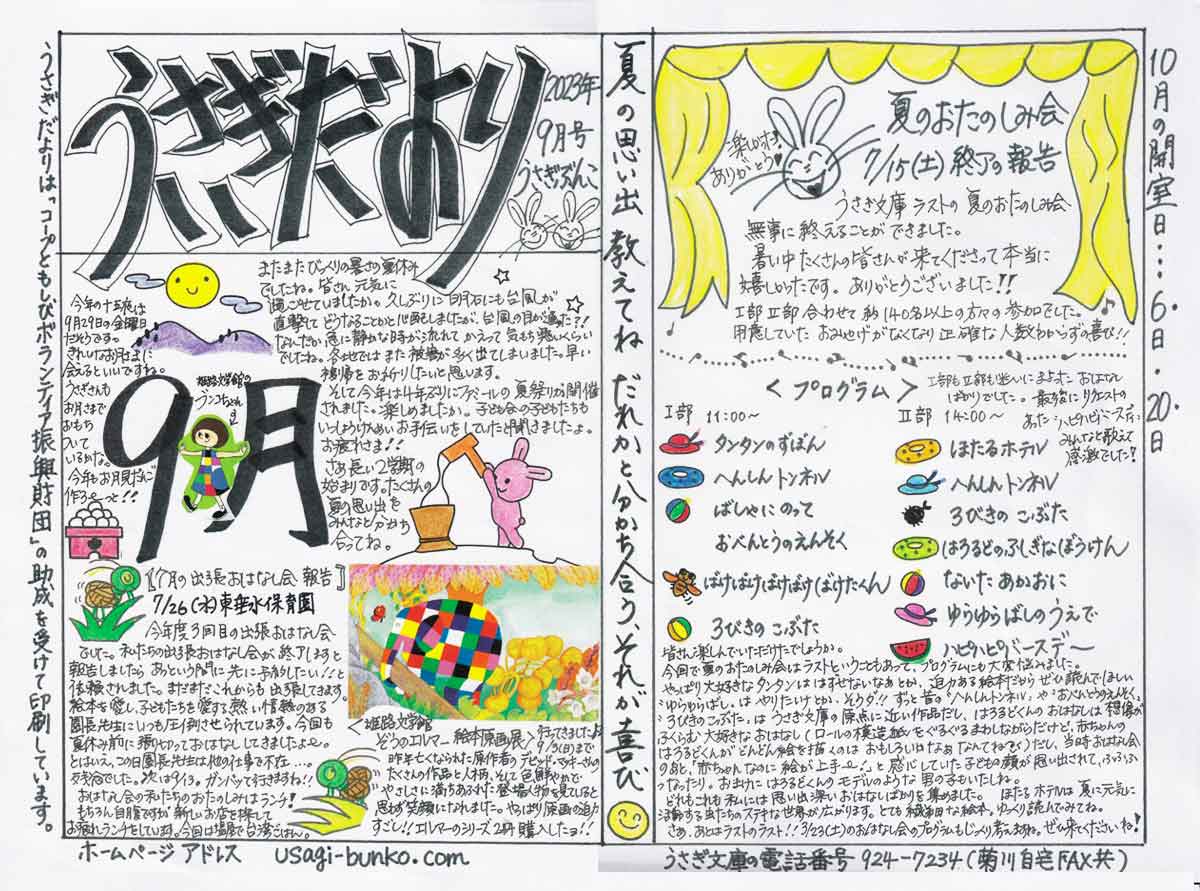 うさぎだより
2023年
9月号
うさぎぶんこ
またまたびっくりの暑さの夏休み
でしたね。皆さん元気に
過ごせていましたか。久しぶりに明石にも台風が
直撃して どうなることかと心配しましたが、台風の目が通った?!
なんだか急に静かな時が流れて かえって気もち悪いくらい
でしたね。各地ではまた被害が多く出てしまいました。早い
復帰をお祈りしたいと思います。
そして今年は4年ぶりにスケールの夏祭りが開催
されました。楽しめましたか。子ども会の子どもたちも
いっしょうけんめいお手伝いをしていたと聞きましたよ。
お疲れさま!!
さあ長い2学期の
始まりです。たくさんの
夏の思い出を
みんなと分かち
合ってね。
今年の十五夜は
9月29日の金曜日
だそうです。
きれいなお月さまに
会えるといいですね。
うさぎさんも
お月さまで
おもち
ついて
いるかな。
今年もお月見だんご
作ろ〜っと!!
姫路文学館の
ブンコちゃん
9月
『7月の出張おはなし会 報告』
7/26(水)東華水保育園
今年度3回目の出張おはなし会
でした。私たちの出張おはなし会が終了しますと
報告しましたら あっという間に先に予約したい!!と
依頼されました。まだまだこれからも出張してます。
絵本を愛し、子どもたちを愛する熱い情熱のある
園長先生にいつも圧倒させられています。今回も
夏休み前に張りきっておはなししてきましたよ〜。
とはいえ、この日園長先生は他の仕事で不在…。
残念でした。次は9/13。ガンバって行きますね!!
おはなし会の私たちのおたのしみはランチ!
もちろん自腹ですが 新しいお店を探して
お疲れランチをしています。今回は場所で台湾ごはん。
<姫路文学館
ぞうのエルマー 絵本原画展>行ってきました
9/3(日)まで
昨年亡くなられた原作者のデビッド・マッキーさんの
たくさんの作品と人柄、そして色鮮やかで
やさしさに満ちあふれた登場人物を見ていると
思わず笑顔になれました。やっぱり原画の迫力
すごし!!エルマーのシリーズ2冊購入したヨ!!
ホームページ アドレス usagi-bunko.com
うさぎだよりは「コープともしびボランティア振興財団」の助成を受けて印刷しています。
夏の思い出 教えてね だれかと分かち合う、それが喜び
10月の開室日…6日・20日
楽しかったね!
ありがとう♥
夏のおたのしみ会
7/15(土)終了の報告
うさぎ文庫 ラストの 夏のおたのしみ会
無事に終えることができました。
暑い中たくさんの皆さんが来てくださって本当に
嬉しかったです。ありがとうございました!!
Ⅰ部Ⅱ部合わせて約140名以上の方々の参加でした。
用意していたおみやげがなくなり正確な人数わからずの喜び!!
<プログラム>
Ⅰ部もⅡ部も迷いに迷ったおはなし
ばかりでした。最後にリクエストの
あった「ハピハピバースデー」
みんなと歌えて
感激でした♪
Ⅰ部 11:00〜
タンタンのずぼん
へんしんトンネル
ばしゃにのって
おべんとうのえんそく
ばけばけばけばけばけたくん
3びきのこぶた
Ⅱ部 14:00〜
ほたるホテル
へんしんトンネル
3びきの こぶた
はろるどのふしぎなぼうけん
ないた あかおに
ゆらゆらばしのうえで
ハピハピバースデー
皆さん楽しんでいただけたでしょうか。
今回で夏のおたのしみ会はラストということもあって、プログラムにも大変悩みました。
やっぱり大好きなタンタンははずせないなあとか、迫力ある絵本だからぜひ読んでほしい
ゆらゆらばし。はやりたいけどか、そうだ!!ずっと昔の「へんしんトンネル」や「おべんとうのえんそく、
3びきのこぶた」は うさぎ文庫の原点に近い作品だし、はろるどのおはなしは想像が
ふくらむ大好きなおはなし(ロールの模造紙をぐるぐるまわしながらだけど)赤ちゃんの
はろるどくんがどんどん絵を描くのはおもしろいなあなんてね)だし、当時おはなし会
のあと、赤ちゃんなのに絵が上手〜!と感心していた子どもの顔が思い出されて、ふふふっ
となったり。おまけにはろるどくんのモデルのような男の子もいたしね。
どれもこれも私には思い出深いおはなしばかりを集めました。 ほたるホテルは夏に元気に
活動する虫たちのステキな世界が広がります。とても繊細な絵本。ゆっくり読んでみてね。
さあ、あとはラストのラスト!!3/23(土)のおはなし会のプログラムもじっくり考えますね。ぜひ来てくださいね!
うさぎ文庫の電話番号 924-7234(菊川自宅FAX共)